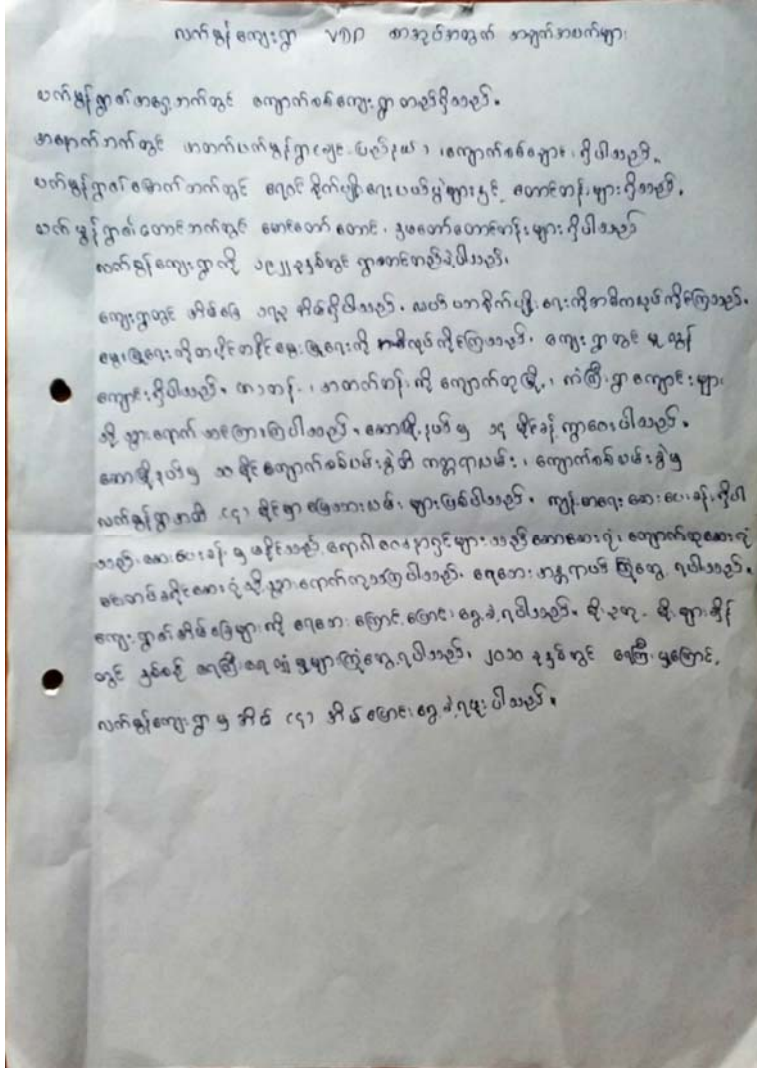 လက်မွန်ကျေးရွာ VDP စာအုပ်အတွက် အချက်အလက်များ
လက်မွန်ရွာ၏အရှေ့ဘက်တွင် ကျောက်စစ်ကျေးရွာ တည်ရှိသည်။
အနောက်ဘက်တွင် အထက်လက်မွန်ရွာ ၊ကျောက်စစ်ချောင်း၊ ရှိပါသည်။
လက်မွန်ရွာ၏မြောက်ဘက်တွင် ရေဝင်စိုက်ပျိုးရေးလယ်ကွဲများနှင့် တောင်တန်းများရှိသည်။
လက်မွန်ရွာ၏တောင်ဘက်တွင် မောင်တော်တောင်၊ နှမတော်တောင်တန်းများရှိပါသည်
လက်မွန်ကျေးရွာကို ၁၉၂၂ ခုနှစ်တွင် ရွာစတင်တည်ခဲ့ပါသည်။
ကျေးရွာတွင် အိမ်ခြေ ၁၇၃ အိမ်ရှိပါသည်။ လယ်ယာစိုက်ပျိုးရေးကိုအဓိကလုပ်ကိုင်ကြသည်။
မွေးမြူရေးကိုတပိုင်တနိုင်မွေးမြူရေးကို လုပ်ကိုင်ကြသည်။ ကျေးရွာတွင် မူလွန်
ကျောင်းရှိပါသည်။ ၊ အထက်တန်းကို ကျောက်ထုမြို့၊ ကံကြီးရွာကျောင်းများ
သို့ သွားရောက် သင်ကြားကြပါသည်။ ဆောမြို့နယ်မှ ၁၄ မိုင်ခန့် ကွာဝေးပါသည်။
ဆောမြို့နယ်မှ ၁၀ မိုင်ကျောက်စစ်လမ်းခွဲထိ ကတ္တရာလမ်း၊ ကျောက်စစ်လမ်းခွဲမှ
လက်မွန်ရွာအထိ (၄) မိုင်မှာမြေသားလမ်း များဖြစ်ပါသည်။ ကျန်းမာရေး ဆေးပေးခန်းရှိပါ
သည်။ ဆေးပေးခန်းမှ မနိုင်သည့် ရောဂါဝေဒနာရှင်များသည် ဆောဆေးရုံ၊ ကျောက်ထုဆေးရုံ
ခရိုင်ဆေးရုံသို့ သွားရောက်ကုသကြပါသည်။ ရေဘေးအန္တရာယ် ကြုံတွေ့ရပါသည်။
ကျေးရွာ၏အိမ်ခြေများကို ရေဘေးကြောင့် ပြောင်းရွေ့ခဲ့ရပါသည်။ မိုးဥတု မိုးများချိန်
တွင် နှစ်စဉ် ရေကြီးရေလျှံမှုများကြုံတွေ့ရပါသည်။ ၂၀၁၁ ခုနှစ်တွင် ရေကြီးမှုကြောင့်
လက်မွန်ကျေးရွာမှ အိမ် (၄) အိမ်ပြောင်းရွေ့ခဲ့ရဖူးပါသည်။